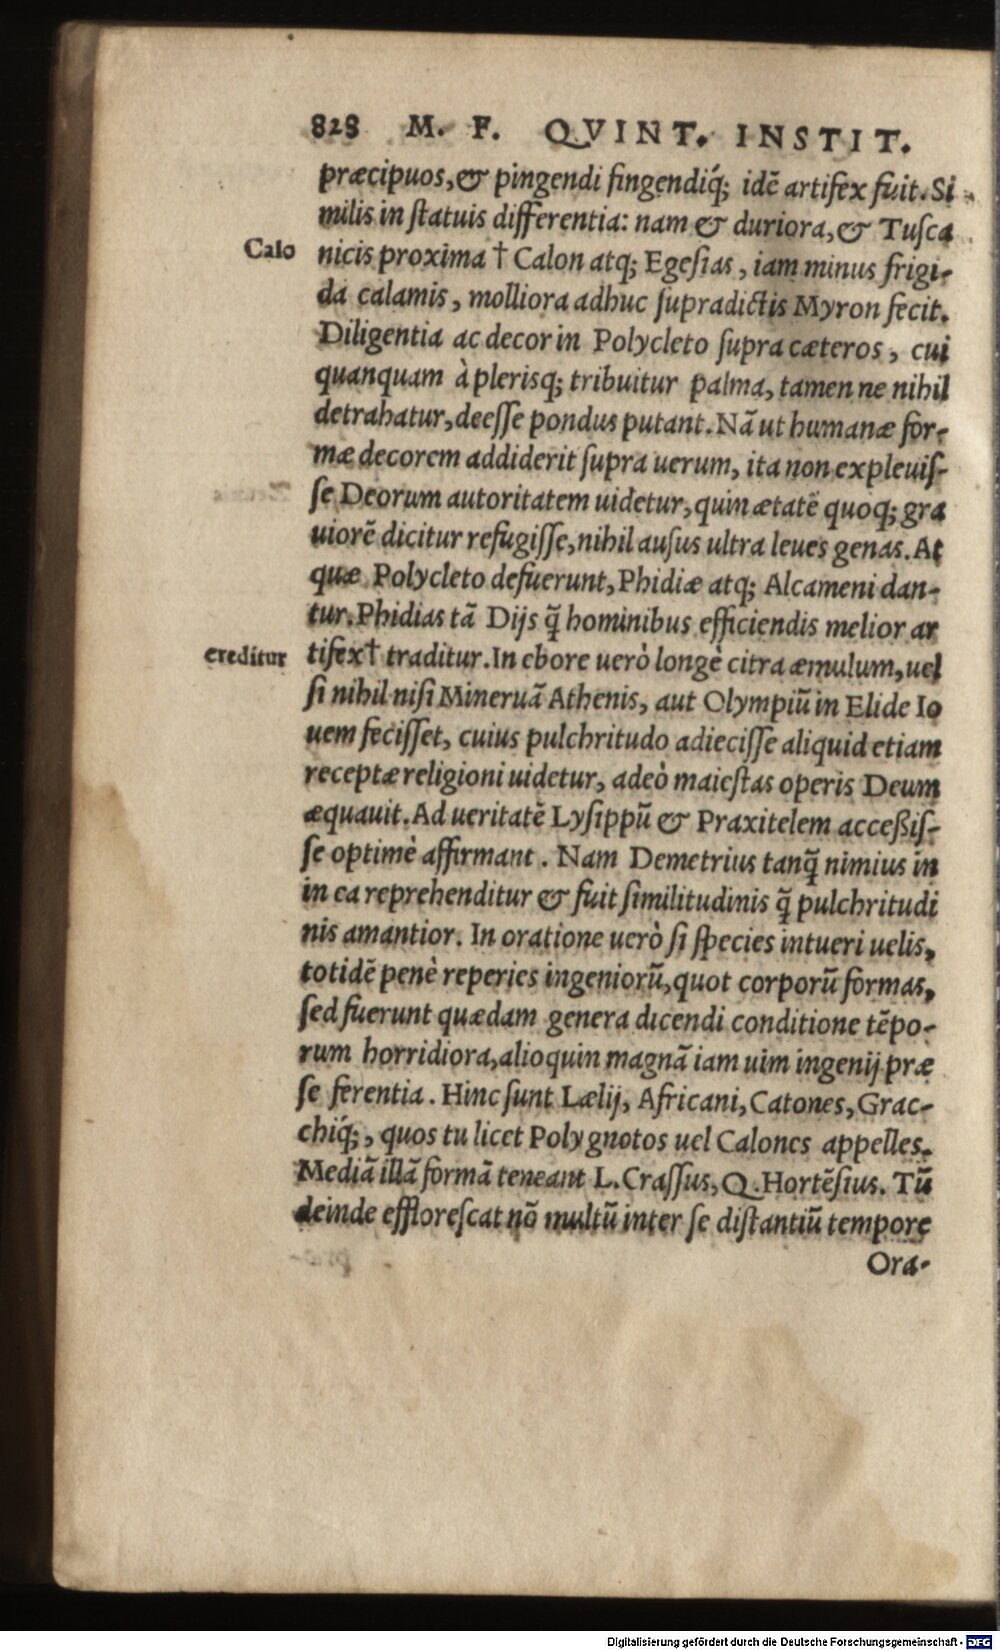 828 M. F. QVINT. INSTIT.
præcipuos,& pingendi fingendiq́; idē artifex fuit. Si
milis in ſtatuis differentia: nam & duriora,& Tuſca
Calo
nicis proxima † Calon atq; Egeſias, iam minus frigi-
da calamis, molliora adhuc ſupradictis Myron fecit.
Diligentia ac decor in Polycleto ſupra cæteros, cui
quanquam à plerisq; tribuitur palma, tamen ne nihil
detrahatur, deeſſe pondus putant. Nā ut humanæ for-
mæ decorem addiderit ſupra uerum, ita non expleuiſ-
ſe Deorum autoritatem uidetur, quin ætatē quoq; gra
uiorē dicitur refugiſſe, nihil auſus ultra leues genas. At
quæ Polycleto defuerunt, Phidiæ atq; Alcameni dan-
tur. Phidias tā Dijs q̃ hominibus efficiendis melior ar
creditur
tifex† traditur. In ebore uerò longè citra æmulum, uel
ſi nihil niſi Mineruā Athenis, aut Olympiū in Elide Io
uem feciſſet, cuius pulchritudo adieciſſe aliquid etiam
receptæ religioni uidetur, adeò maieſtas operis Deum
æquauit. Ad ueritatē Lyſippū & Praxitelem acceßiſ-
ſe optimè affirmant. Nam Demetrius tanq̃ nimius in
in ea reprehenditur & fuit ſimilitudinis q̃ pulchritudi
nis amantior. In oratione uerò ſi ſpecies intueri uelis,
totidē penè reperies ingeniorū, quot corporū formas,
ſed fuerunt quædam genera dicendi conditione tēpo-
rum horridiora, alioquin magnā iam uim ingenij præ
ſe ferentia. Hinc ſunt Lælij, Africani, Catones, Grac-
chiq́;, quos tu licet Polygnotos uel Calones appelles.
Mediā illā formā teneant L. Craſſus, Q. Hortēſius. Tū
deinde effloreſcat nō multū inter ſe diſtantiū tempore
Ora-
Digitalisierung gefördert durch die Deutsche Forschungsgemeinschaft - DFG